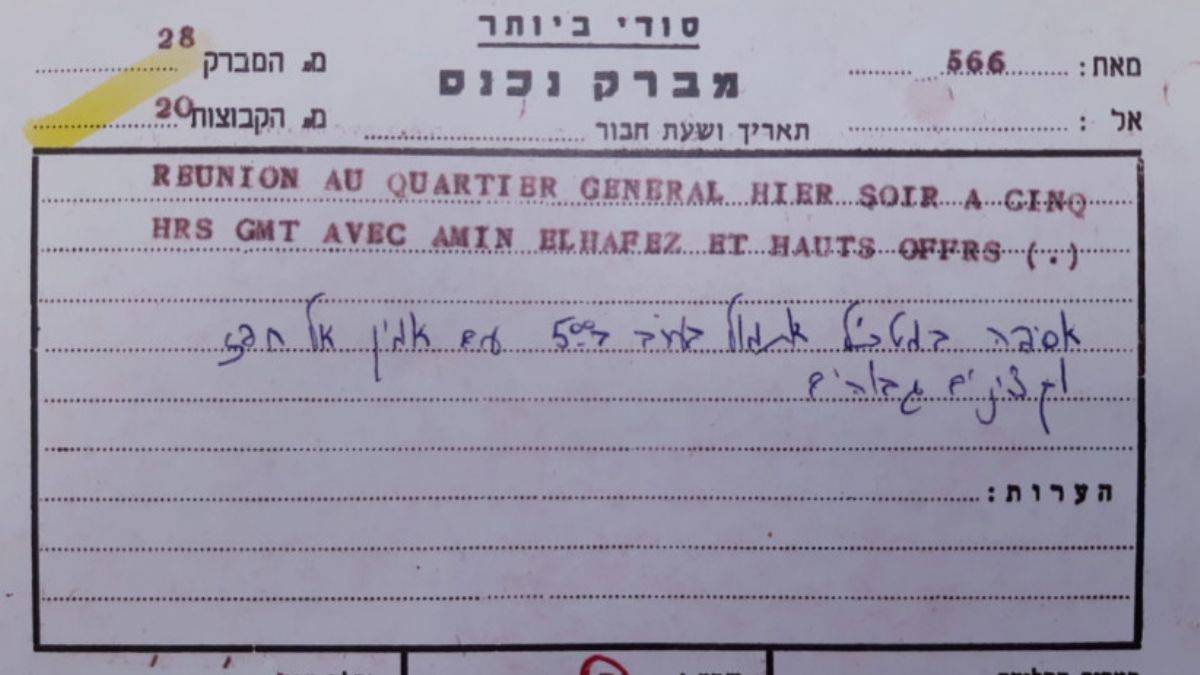 סודי ביותר
מברק נכנס
מאת: 566
מ. המברק 28
אל :
תאריך ושעת חבור
מ. הקבוצות 20
REUNION AU QUARTIER GENERAL HIER SOIR A CINQ
HRS GMT AVEC AMIN ELHAFEZ ET HAUTS OFFRS (.)
אסיפה במטכ"ל אתמול בערב ב־5⁰⁰ עם אמין אל חפז
וקצינים גבוהים
הערות: